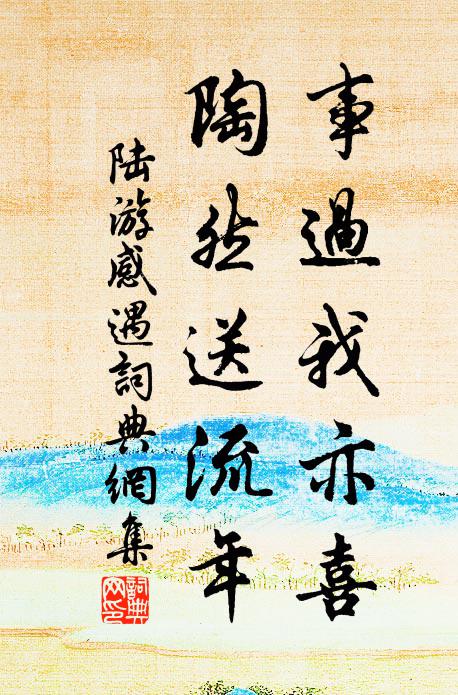 事過我亦喜
陶然送流年
陸游感遇詞典網集
詞典
网印